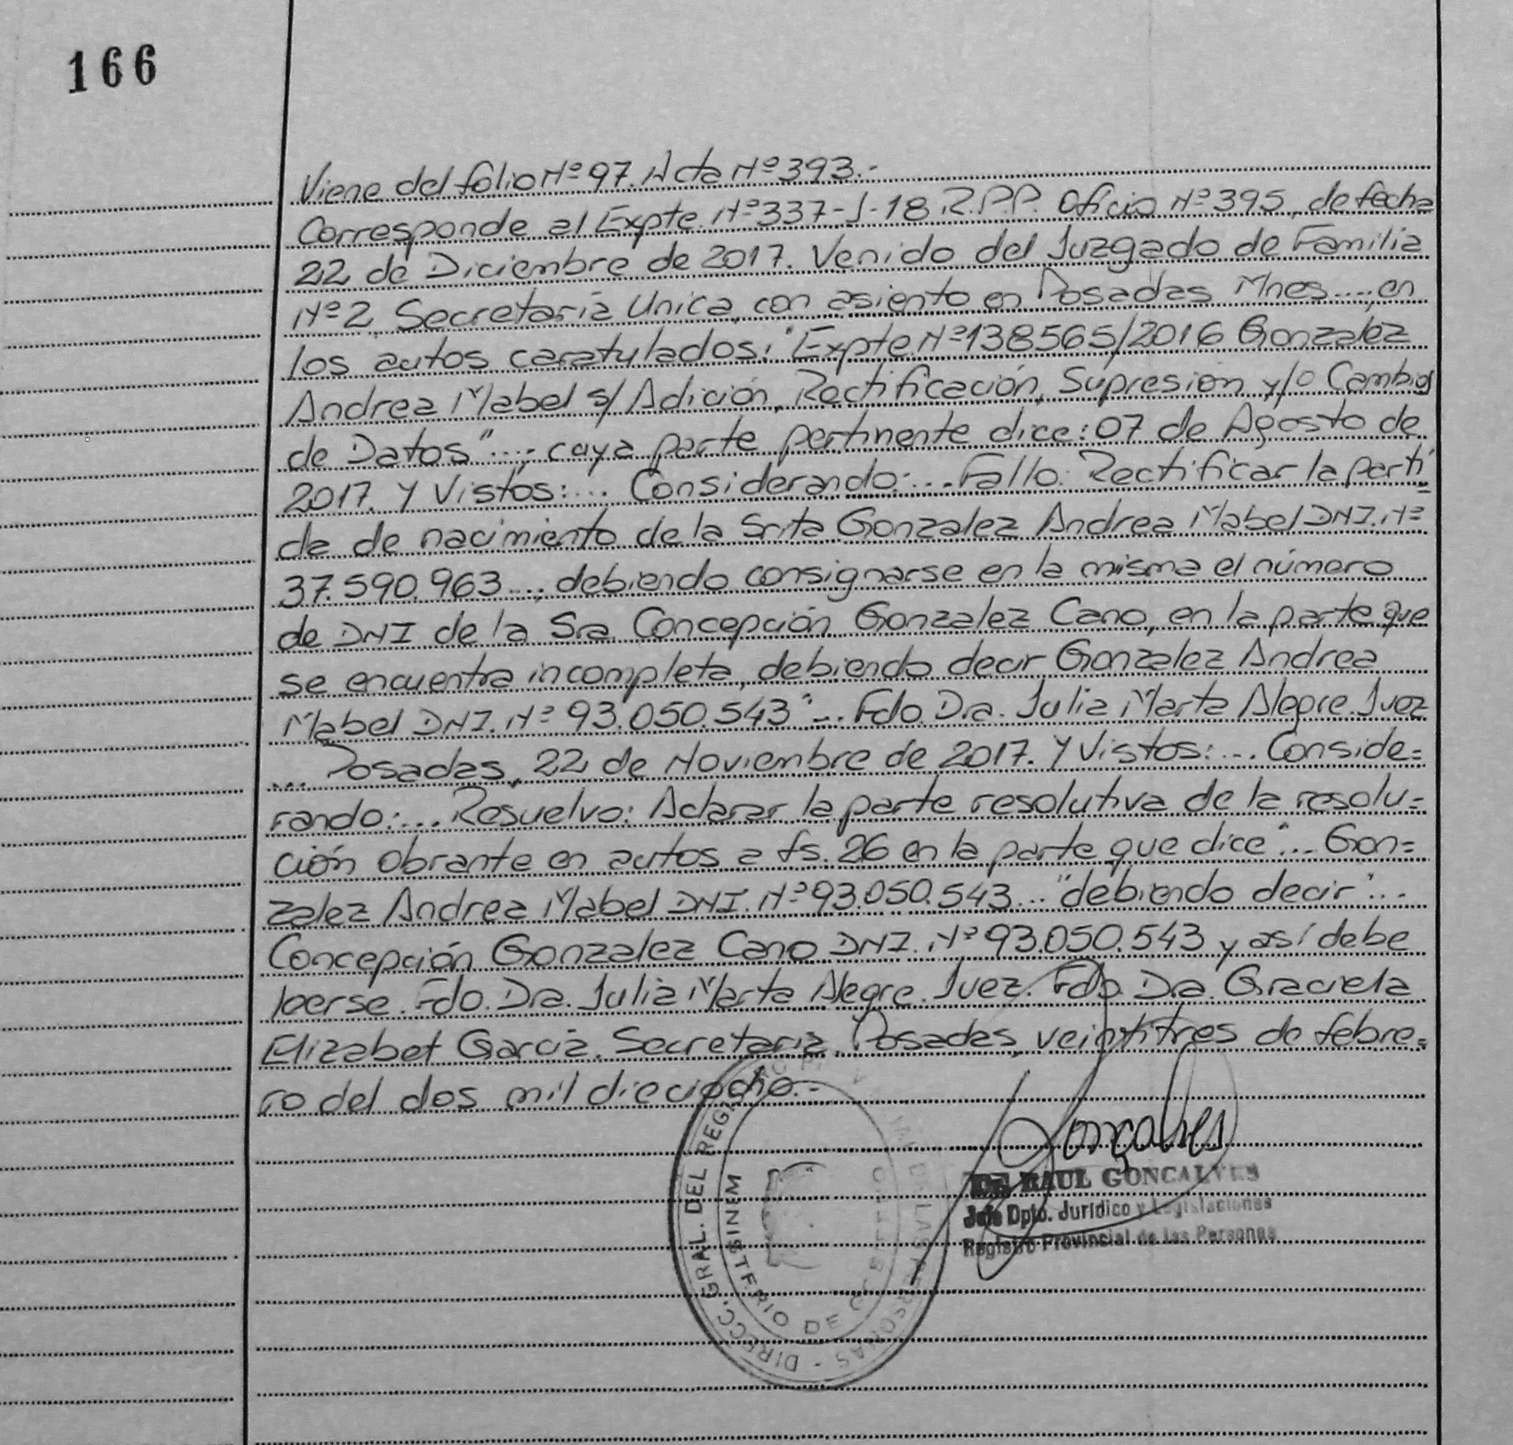 166
Viene del folio Nº 97. Acta Nº 393.-
Corresponde al Expte. Nº 337-J-18 R.P.P. Oficio Nº 395, de fecha
22 de Diciembre de 2017. Venido del Juzgado de Familia
Nº 2, Secretaría Unica, con asiento en Posadas Mnes...., en
los autos caratulados: "Expte. Nº 138565/2016 Gonzalez
Andrea Mabel s/ Adición, Rectificación, Supresión y/o Cambio
de Datos"...; cuya parte pertinente dice: 07 de Agosto de
2017. Y Vistos:... Considerando:... Fallo: Rectificar la parti
da de nacimiento de la Srita Gonzalez Andrea Mabel DNI. Nº
37.590.963..., debiendo consignarse en la misma el número
de DNI de la Sra Concepción Gonzalez Cano, en la parte que
se encuentra incompleta, debiendo decir Gonzalez Andrea
Mabel DNI. Nº 93.050.543"... Fdo. Dra. Julia Marta Alegre. Juez
... Posadas, 22 de Noviembre de 2017. Y Vistos:... Conside=
rando:... Resuelvo: Aclarar la parte resolutiva de la resolu=
ción obrante en autos a fs. 26 en la parte que dice "... Gon=
zalez Andrea Mabel DNI. Nº 93.050.543..." debiendo decir "...
Concepción Gonzalez Cano DNI. Nº 93.050.543 y así debe
leerse. Fdo. Dra. Julia Marta Alegre. Juez. Fdo. Dra. Graciela
Elizabet García. Secretaria. Posadas, veintitres de febre=
ro del dos mil dieciocho.-
Gonçalves
Dr. RAUL GONCALVES
Jefe Dpto. Jurídico y Legislaciones
Registro Provincial de las Personas
DIRECC. GRAL. DEL REG. DE LAS PERSONAS
MINISTERIO DE